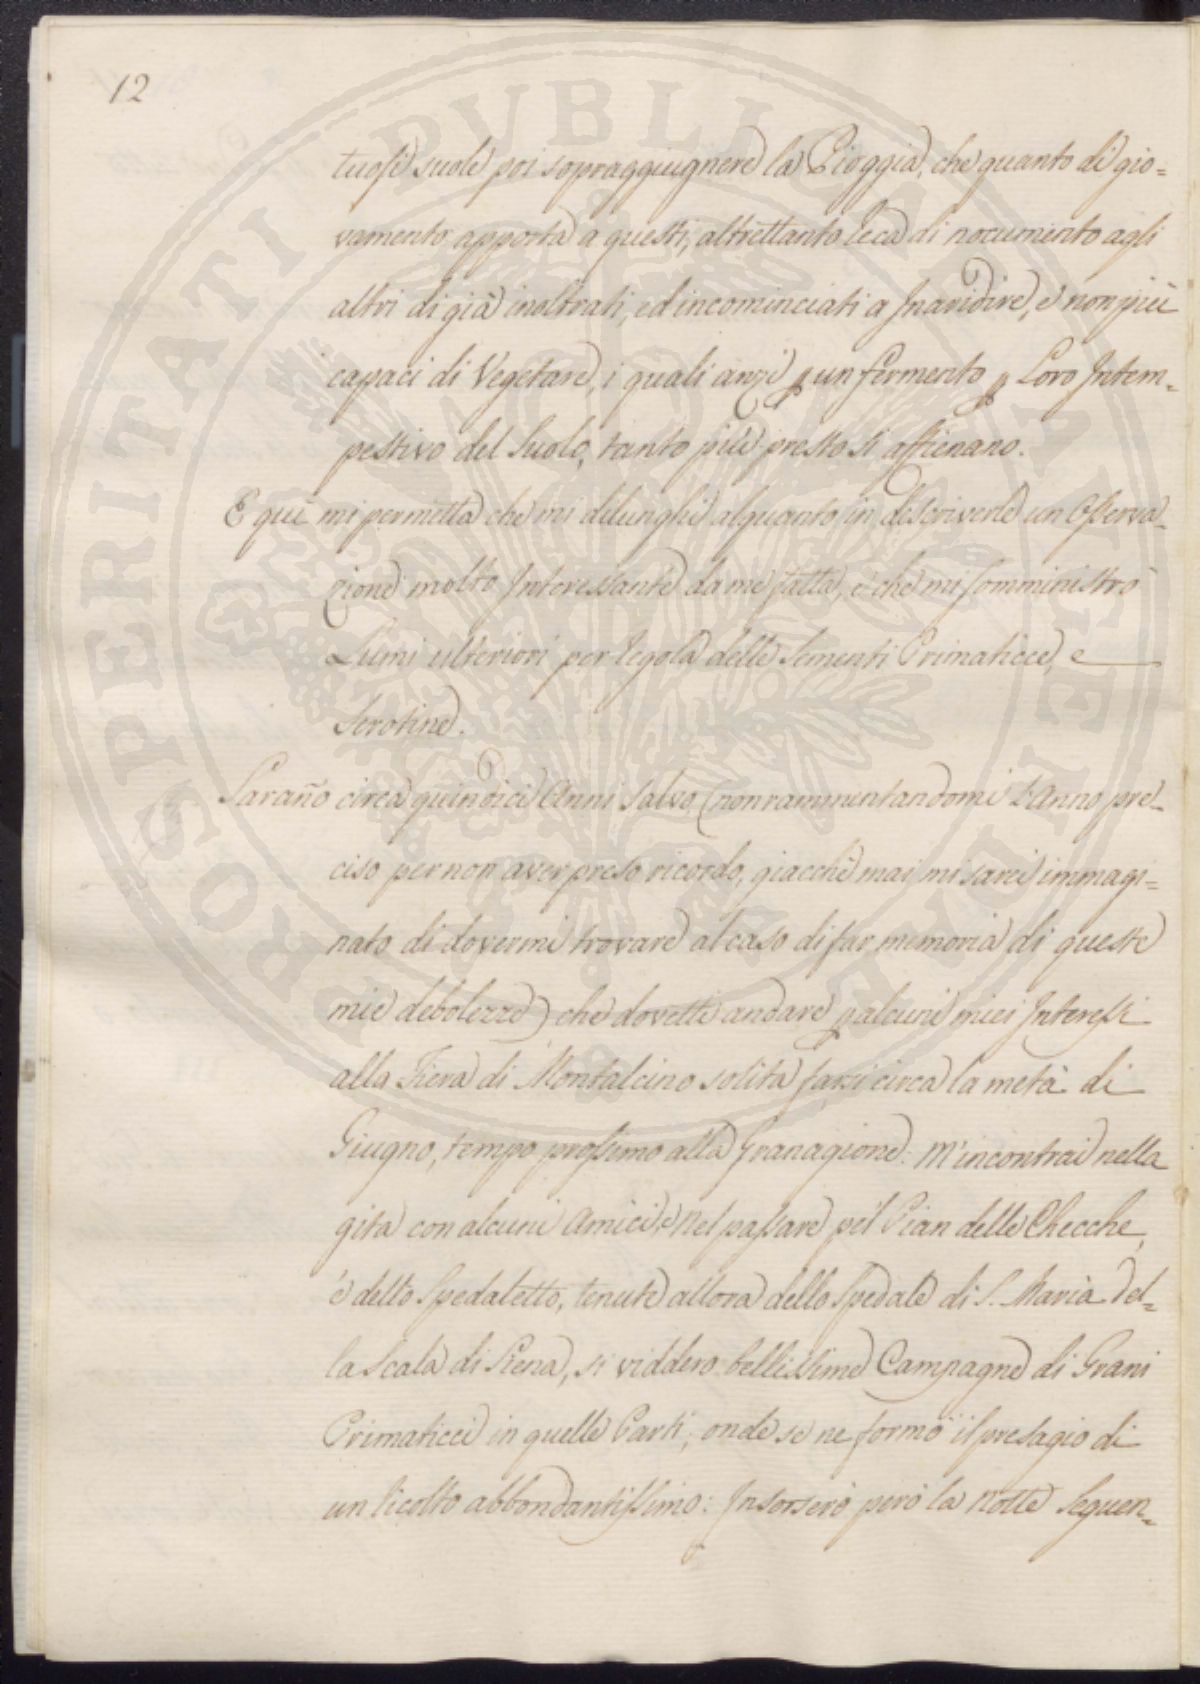 12
tuosi suole poi sopraggiugnere la Pioggia, che quanto di gio=
vamento apporta a questi, altrettanto reca di nocumento agli
altri di già inoltrati, ed incominciati a Inaridire, e non più
capaci di Vegetare, i quali anzi p un fermento p Loro Intem=
pestivo del Suolo, tanto più presto si affienano.
E quì mi permetta che mi dilunghi alquanto in descriverle un Osserva=
zione molto Interessante da me fatta, e che mi somministrò
Lumi ulteriori per regola delle Sementi Primaticce, e
Serotine.
Saraño circa quindici Anni salvo (non rammentandomi l'Anno pre=
ciso per non aver preso ricordo, giacchè mai mi sarei immagi=
nato di dovermi trovare al caso di far memoria di queste
mie debolezze) che dovetti andare p alcuni miei Interessi
alla Fiera di Montalcino solita farsi circa la metà di
Giugno, tempo prossimo alla Granagione. M'incontrai nella
gita con alcuni Amici, e nel passare pel Pian delle Checche,
e dello Spedaletto, tenute allora dello Spedale di S. Maria del=
la Scala di Siena, si viddero bellissime Campagne di Grani
Primaticci in quelle Parti, onde se ne formò il presagio di
un ricolto abbondantissimo: Insorsero però la notte seguen=
PROSPERITATI PUBLICAE AUGENDAE